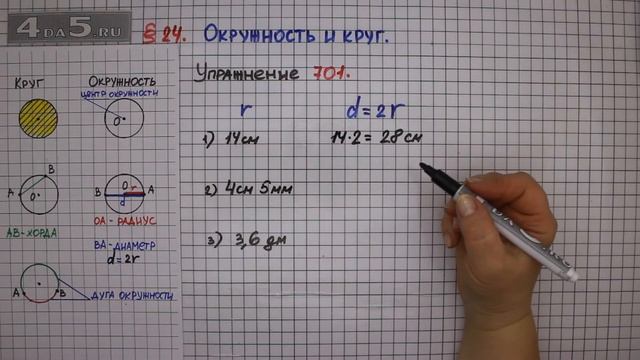 4DA5.RU
§ 24. Окружность и круг.
Упражнение 701.
Круг Окружность
центр окружности
O
A B O
B O r A
d
OA - радиус
AB - хорда
BA - диаметр
d = 2r
A B
дуга окружности
r d = 2r
1) 14 см 14 · 2 = 28 см
2) 4 см 5 мм
3) 3,6 дм